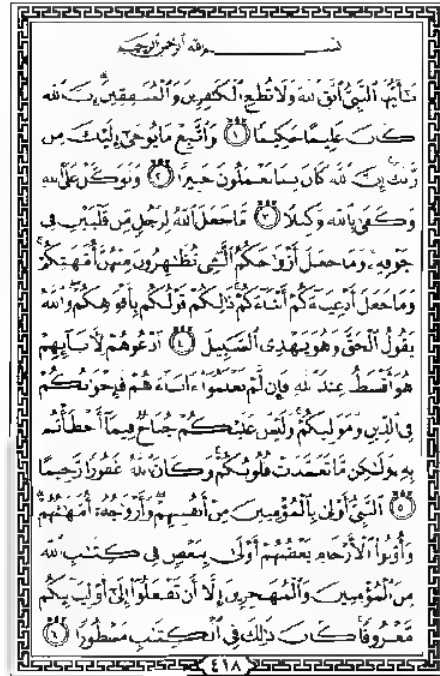 بِسْمِ اللَّهِ الرَّحْمَٰنِ الرَّحِيمِ
يَٰٓأَيُّهَا ٱلنَّبِىُّ ٱتَّقِ ٱللَّهَ وَلَا تُطِعِ ٱلْكَٰفِرِينَ وَٱلْمُنَٰفِقِينَ إِنَّ ٱللَّهَ
كَانَ عَلِيمًا حَكِيمًا ١ وَٱتَّبِعْ مَا يُوحَىٰٓ إِلَيْكَ مِن
رَّبِّكَ إِنَّ ٱللَّهَ كَانَ بِمَا تَعْمَلُونَ خَبِيرًا ٢ وَتَوَكَّلْ عَلَى ٱللَّهِ
وَكَفَىٰ بِٱللَّهِ وَكِيلًا ٣ مَّا جَعَلَ ٱللَّهُ لِرَجُلٍ مِّن قَلْبَيْنِ فِى
جَوْفِهِۦ وَمَا جَعَلَ أَزْوَٰجَكُمُ ٱلَّٰٓـِٔى تُظَٰهِرُونَ مِنْهُنَّ أُمَّهَٰتِكُمْ
وَمَا جَعَلَ أَدْعِيَآءَكُمْ أَبْنَآءَكُمْ ذَٰلِكُمْ قَوْلُكُم بِأَفْوَٰهِكُمْ وَٱللَّهُ
يَقُولُ ٱلْحَقَّ وَهُوَ يَهْدِى ٱلسَّبِيلَ ٤ ٱدْعُوهُمْ لِأَبَآئِهِمْ
هُوَ أَقْسَطُ عِندَ ٱللَّهِ فَإِن لَّمْ تَعْلَمُوٓا۟ ءَابَآءَهُمْ فَإِخْوَٰنُكُمْ
فِى ٱلدِّينِ وَمَوَٰلِيكُمْ وَلَيْسَ عَلَيْكُمْ جُنَاحٌ فِيمَآ أَخْطَأْتُم
بِهِۦ وَلَٰكِن مَّا تَعَمَّدَتْ قُلُوبُكُمْ وَكَانَ ٱللَّهُ غَفُورًا رَّحِيمًا
٥ ٱلنَّبِىُّ أَوْلَىٰ بِٱلْمُؤْمِنِينَ مِنْ أَنفُسِهِمْ وَأَزْوَٰجُهُۥٓ أُمَّهَٰتُهُمْ
وَأُو۟لُوا۟ ٱلْأَرْحَامِ بَعْضُهُمْ أَوْلَىٰ بِبَعْضٍ فِى كِتَٰبِ ٱللَّهِ
مِنَ ٱلْمُؤْمِنِينَ وَٱلْمُهَٰجِرِينَ إِلَّآ أَن تَفْعَلُوٓا۟ إِلَىٰٓ أَوْلِيَآئِكُم
مَّعْرُوفًا كَانَ ذَٰلِكَ فِى ٱلْكِتَٰبِ مَسْطُورًا ٦
٤١٨